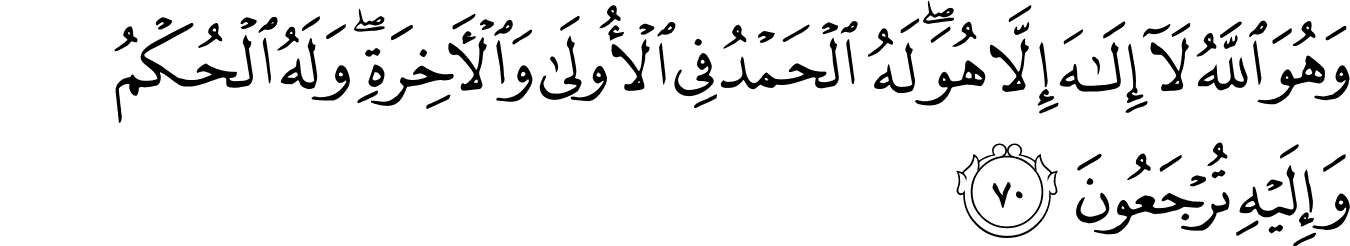 وَهُوَ ٱللَّهُ لَآ إِلَـٰهَ إِلَّا هُوَ ۖ لَهُ ٱلْحَمْدُ فِى ٱلْأُولَىٰ وَٱلْـَٔاخِرَةِ ۖ وَلَهُ ٱلْحُكْمُ
وَإِلَيْهِ تُرْجَعُونَ ٧٠